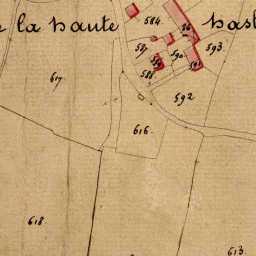 la haute
584
96
593
587
590
591
588
617.
592
616.
618.
613.